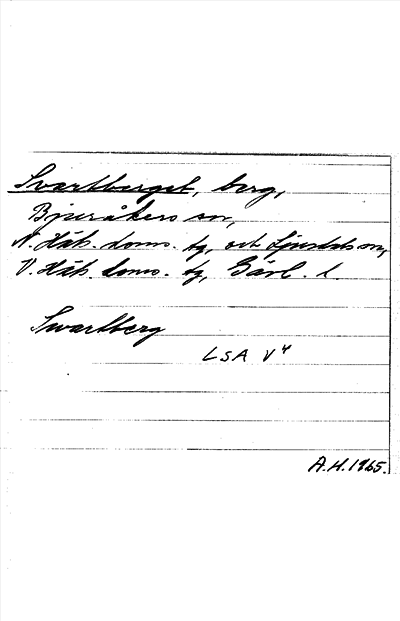 Svartberget, berg,
Bjuråkers sn,
N. Häls. doms. tg, och Ljusdals sn,
V. Häls. doms. tg, Gävl. l.
Svartberg
LSA V4
A.H. 1965.